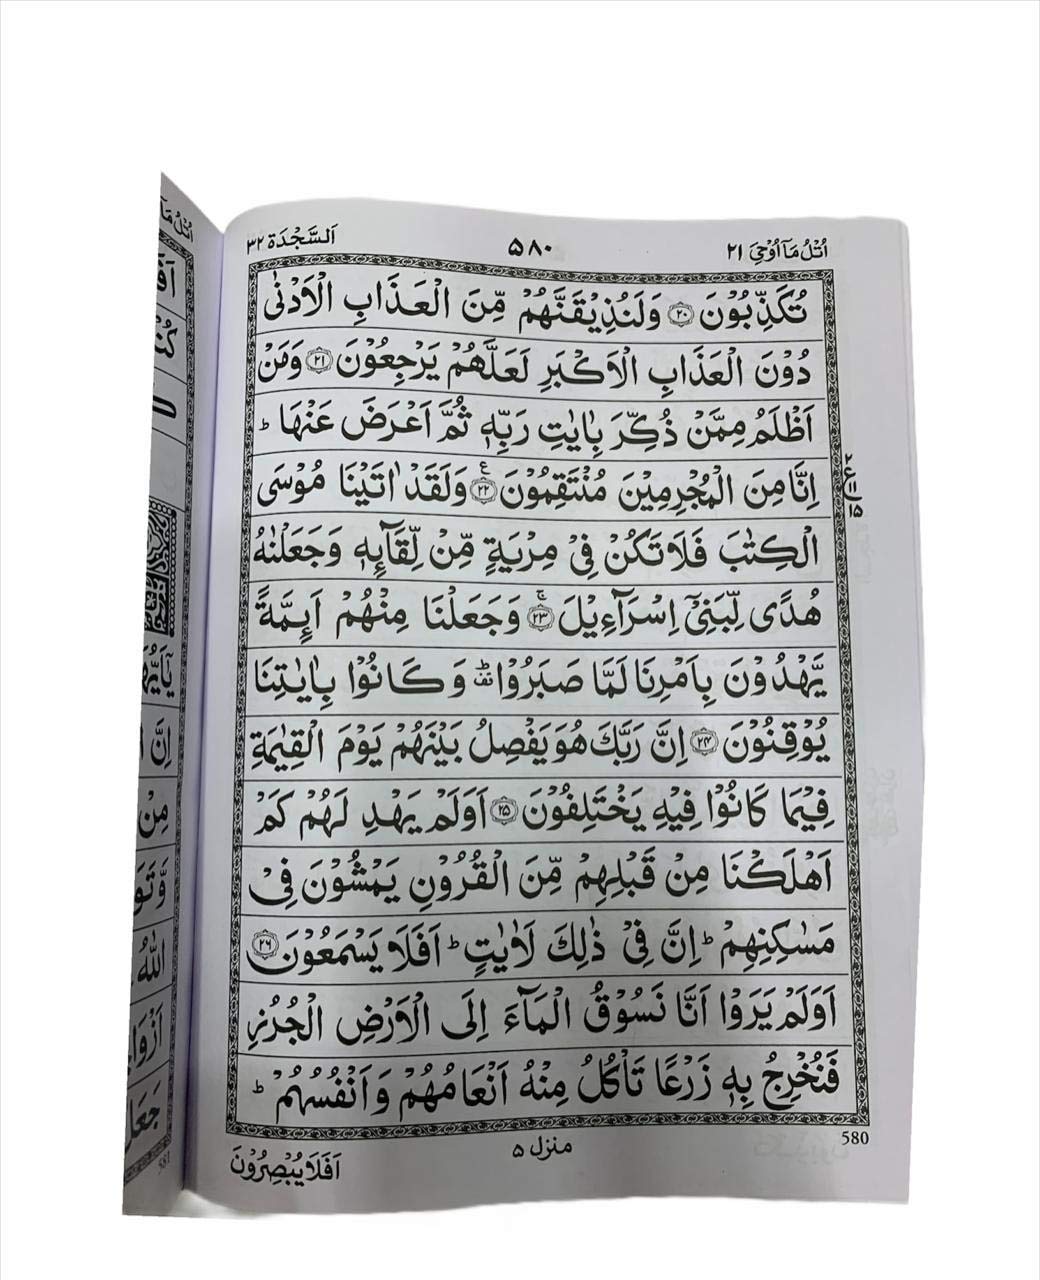 اُتْلُ مَآ اُوْحِیَ ۲۱
۵۸۰
اَلسَّجْدَة ۳۲
تُكَذِّبُوْنَ ۲۰ وَلَنُذِيْقَنَّهُمْ مِّنَ الْعَذَابِ الْاَدْنٰى
دُوْنَ الْعَذَابِ الْاَكْبَرِ لَعَلَّهُمْ يَرْجِعُوْنَ ۲۱ وَمَنْ
اَظْلَمُ مِمَّنْ ذُكِّرَ بِاٰيٰتِ رَبِّهٖ ثُمَّ اَعْرَضَ عَنْهَا ؕ
اِنَّا مِنَ الْمُجْرِمِيْنَ مُنْتَقِمُوْنَ ۲۲ ع وَلَقَدْ اٰتَيْنَا مُوْسَى
الْكِتٰبَ فَلَا تَكُنْ فِيْ مِرْيَةٍ مِّنْ لِّقَآئِهٖ وَجَعَلْنٰهُ
هُدًى لِّبَنِيْٓ اِسْرَآءِيْلَ ۲۳ ج وَجَعَلْنَا مِنْهُمْ اَئِمَّةً
يَّهْدُوْنَ بِاَمْرِنَا لَمَّا صَبَرُوْا وَكَانُوْا بِاٰيٰتِنَا
يُوْقِنُوْنَ ۲۴ اِنَّ رَبَّكَ هُوَ يَفْصِلُ بَيْنَهُمْ يَوْمَ الْقِيٰمَةِ
فِيْمَا كَانُوْا فِيْهِ يَخْتَلِفُوْنَ ۲۵ اَوَلَمْ يَهْدِ لَهُمْ كَمْ
اَهْلَكْنَا مِنْ قَبْلِهِمْ مِّنَ الْقُرُوْنِ يَمْشُوْنَ فِيْ
مَسٰكِنِهِمْ ؕ اِنَّ فِيْ ذٰلِكَ لَاٰيٰتٍ ؕ اَفَلَا يَسْمَعُوْنَ ۲۶
اَوَلَمْ يَرَوْا اَنَّا نَسُوْقُ الْمَآءَ اِلَى الْاَرْضِ الْجُرُزِ
فَنُخْرِجُ بِهٖ زَرْعًا تَاْكُلُ مِنْهُ اَنْعَامُهُمْ وَاَنْفُسُهُمْ ؕ
۲
ع
۱۱
۱۵
580
منزل ۵
اَفَلَا يُبْصِرُوْنَ
اِنَّ
مِنْ
اللّٰهُ
581